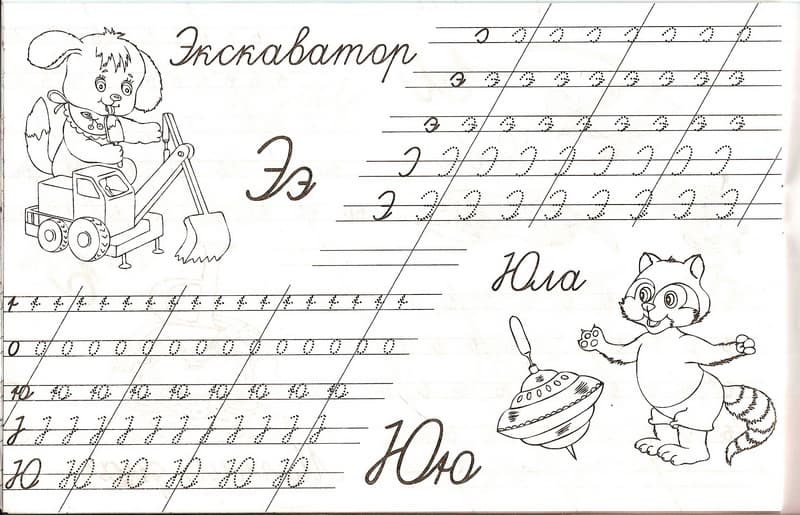 Экскаватор
э э э э э э э э э
э э э э э э э э э э
Ээ
Э Э Э Э Э Э Э Э Э
Юла
о о о о о о о о о о о о о о о
ю ю ю ю ю ю ю ю ю
Юю
Ю Ю Ю Ю Ю Ю